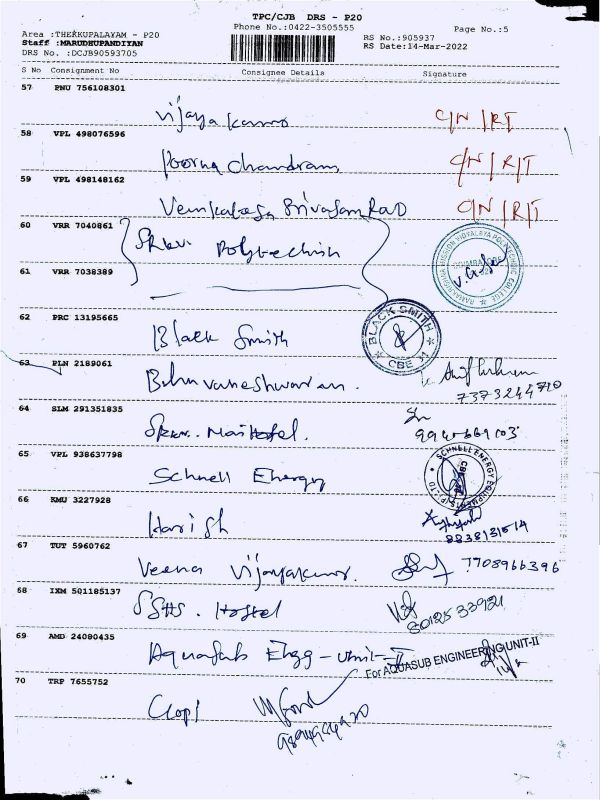 TPC/CJB DRS - P20
Area :THEKKUPALAYAM - P20
Phone No.:0422-3505555
Page No.:5
Staff :MARUDHUPANDIYAN
RS No.:905937
DRS No. :DCJB90593705
RS Date:14-Mar-2022
S No Consignment No Consignee Details Signature
57 PNU 756108301
Vijaya Kumar C/N/RT
58 VPL 498076596
Poorna Chandram C/N/R/T
59 VPL 498148162
Venkatesa Srivasan Rao C/N/R/T
60 VRR 7040861
SRKV. Polytechnic
61 VRR 7038389
62 PRC 13195665
BLACK SMITH
CBE
Black Smith
63 PLN 2189061
Bhuvaneshwaran.
7373244710
64 SLM 291351835
65 VPL 938637798
SCHNELL ENERGY EQUIPMENTS (P) LTD
Schnell Energy
66 KMU 3227928
Harish
8838131514
67 TUT 5960762
Veena Vijayakumar. 7708966396
68 IXM 501185137
Hostel
69 AMD 24080435
Aquasub Engg - Unit - II
For AQUASUB ENGINEERING UNIT-II
70 TRP 7655752